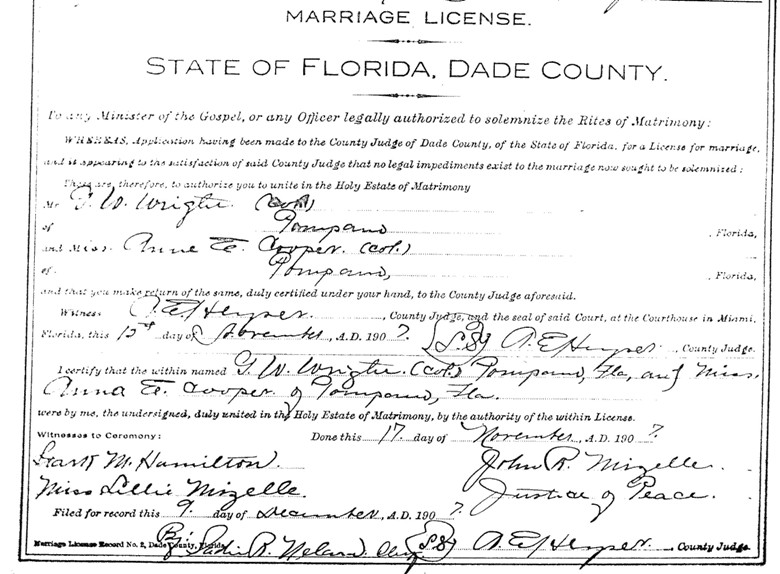 MARRIAGE LICENSE.
STATE OF FLORIDA, DADE COUNTY.
To any Minister of the Gospel, or any Officer legally authorized to solemnize the Rites of Matrimony:
WHEREAS, Application having been made to the County Judge of Dade County, of the State of Florida, for a License for marriage,
and it appearing to the satisfaction of said County Judge that no legal impediments exist to the marriage now sought to be solemnized:
These are, therefore, to authorize you to unite in the Holy Estate of Matrimony
Mr. W. (col.)
of Pompano , Florida,
and Miss. Anna E. Cooper. (col.)
of Pompano, , Florida,
and that you make return of the same, duly certified under your hand, to the County Judge aforesaid.
Witness A. E. Heyser. , County Judge, and the seal of said Court, at the Courthouse in Miami,
Florida, this day of November, A.D. 190 7. (L.S.) A. E. Heyser , County Judge.
I certify that the within named W. (col.) Pompano, Fla, and Miss.
Anna E. Cooper of Pompano, Fla.
were by me, the undersigned, duly united in the Holy Estate of Matrimony, by the authority of the within License.
Witnesses to Ceremony: Done this 17. day of November, A.D. 190 7.
M. Hamilton. John R. Mizelle.
Miss Lillie Mizelle. Justice of Peace.
Filed for record this 9. day of December, A.D. 190 7.
Marriage License Record No. 2, Dade County, Florida By: R. (L.S.) A. E. Heyser , County Judge.